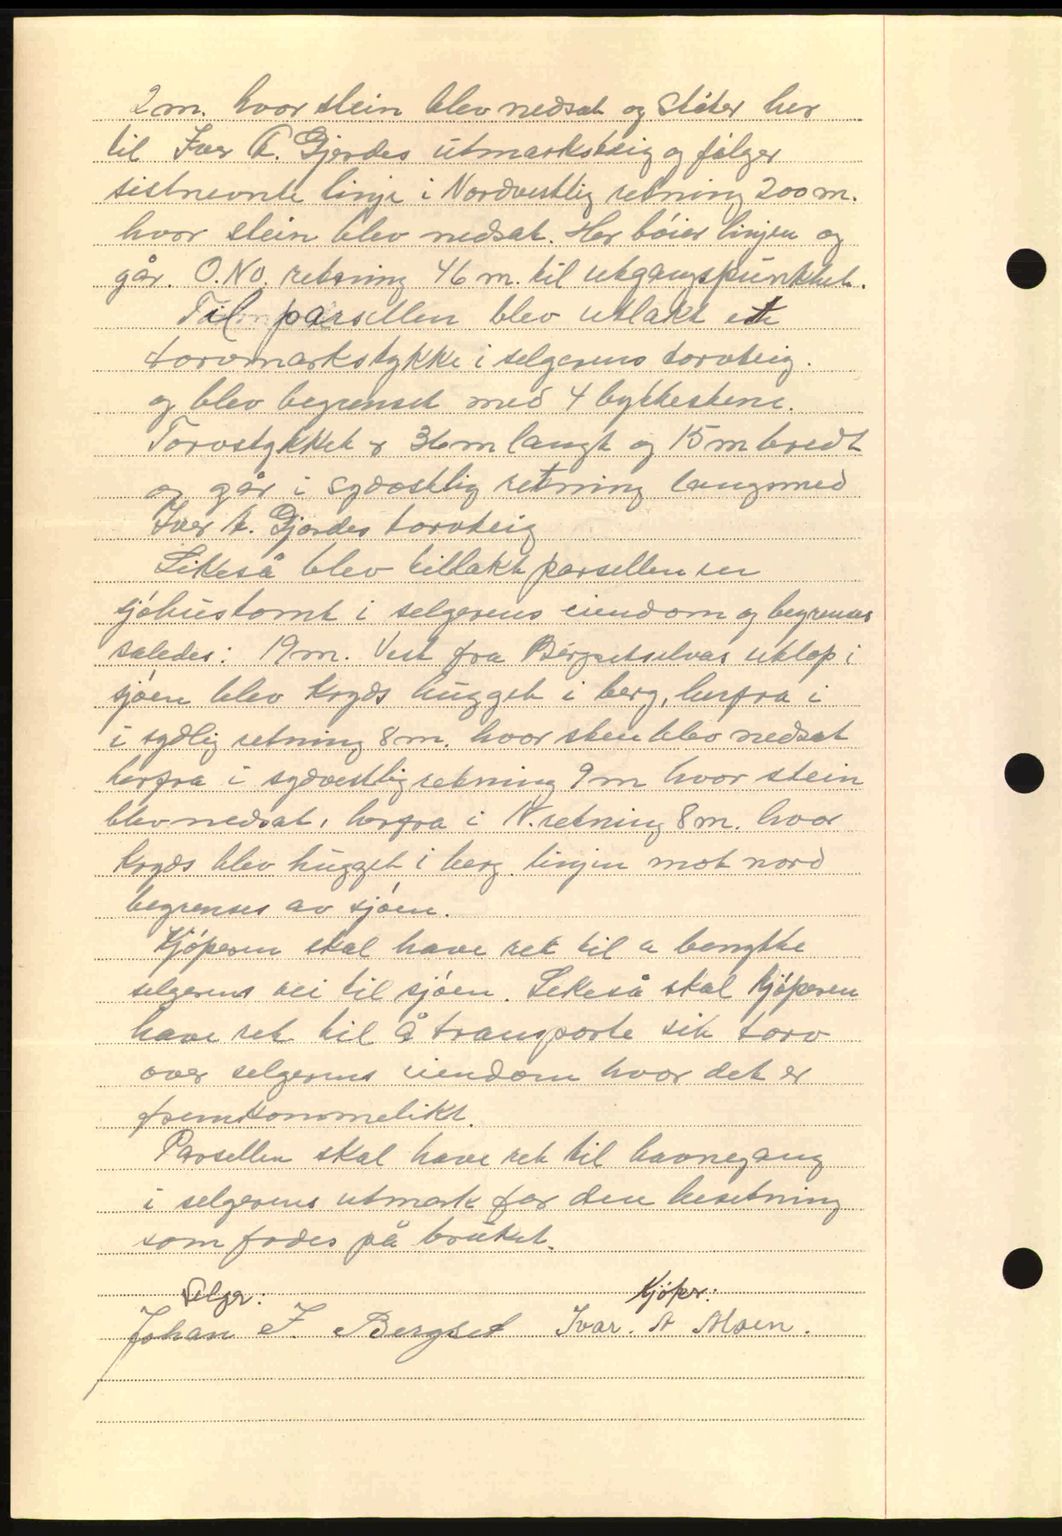 2 m. hvor stein blev nedsat og støter her
til Iver A. Gjerdes utmarksteig og følger
sistnevnte linje i Nordvestlig retning 200 m.
hvor stein blev nedsat. Her bøier linjen og
går. O.NO. retning 46 m. til utgangspunktet.
Til parsellen blev utlakt ett
torvmarkstykke i selgerens torvteig.
og blev begrenset med 4 byttestene.
Torvstykket er 36 m langt og 15 m bredt
og går i sydøstlig retning langsmed
Iver A. Gjerdes torvteig
Likeså blev tillakt parsellen en
sjøhustomt i selgerens eiendom og begrenses
saledes: 19 m. Vest fra Bergsetselvas utløp i
sjøen blev kryds hugget i berg, herfra i
i sydlig retning 8 m. hvor sten blev nedsat
herfra i sydvestlig retning 9 m hvor stein
blev nedsat, herfra i N. retning 8 m. hvor
kryds blev hugget i berg. linjen mot nord
begrenses av sjøen.
Kjøperen skal have ret til a benytte
selgerens vei til sjøen. Likeså skal kjøperen
have ret til å transporte sit torv
over selgerens eiendom hvor det er
fremkommelikt.
Parsellen skal have ret til havnegang
i selgerens utmark for den besetning
som fødes på bruket.
Selger: Kjøper:
Johan J. Bergset Ivar. A Moen.